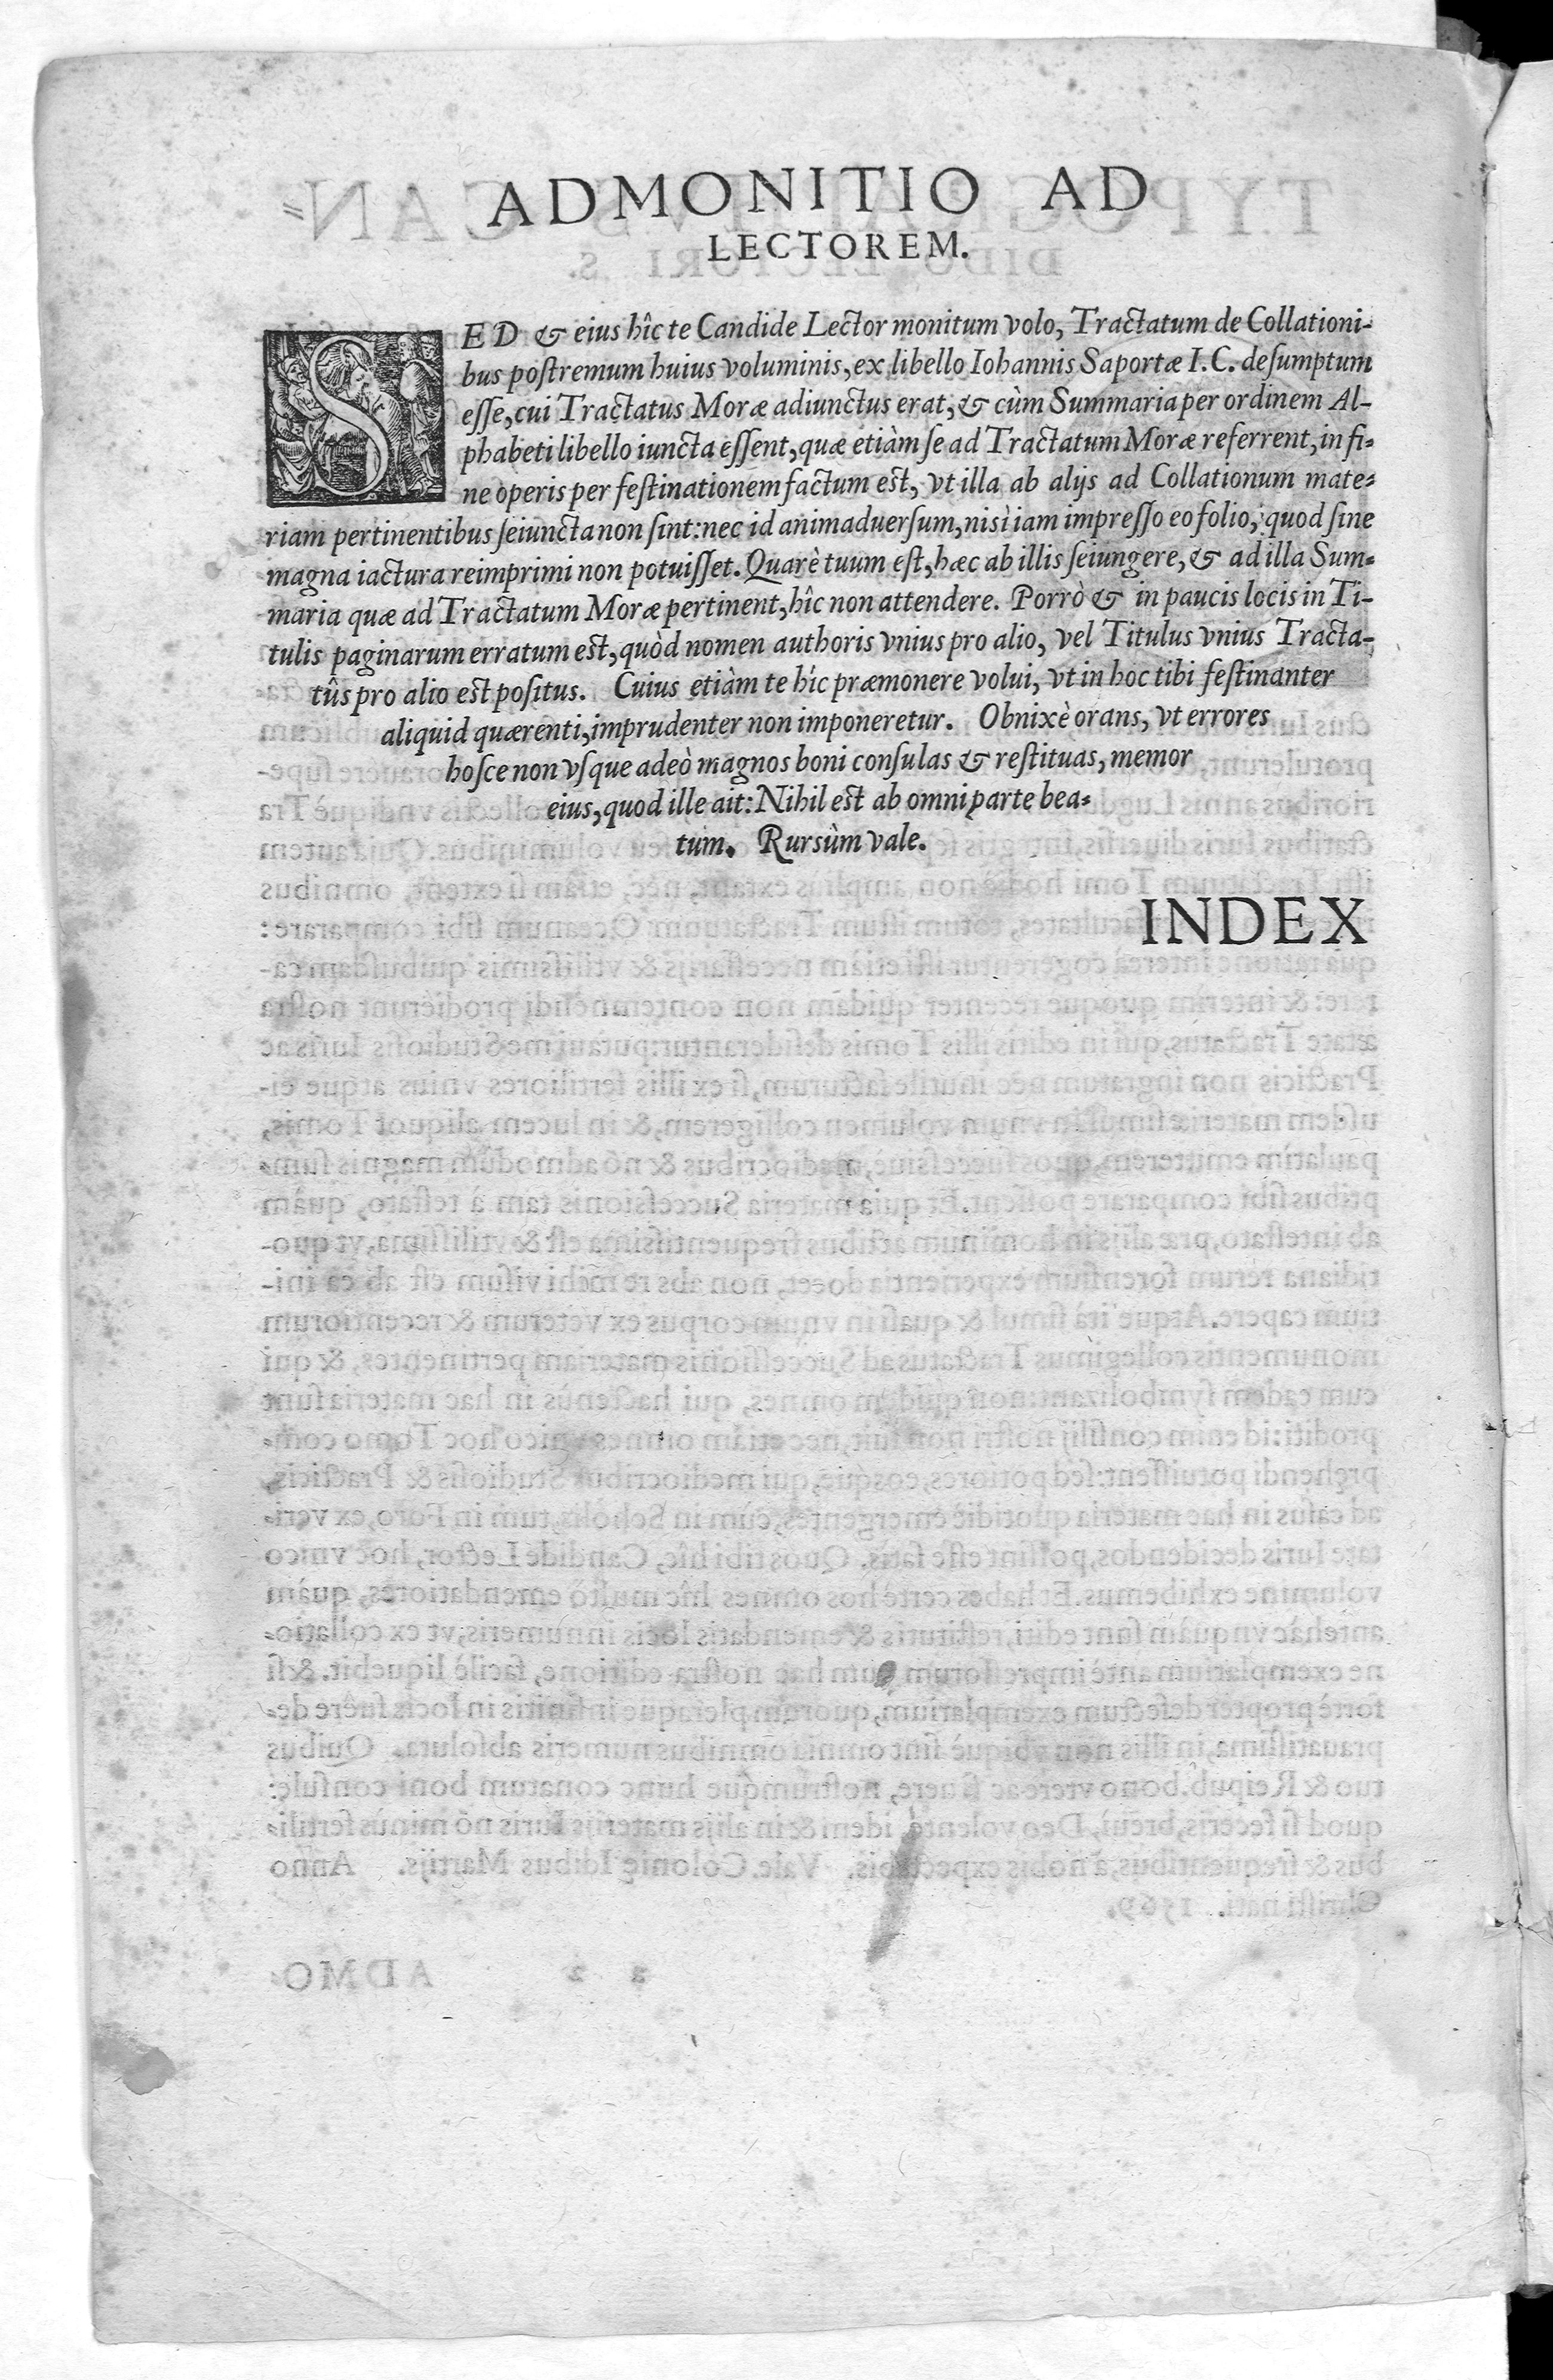 ADMONITIO AD
LECTOREM.
SED & eius hîc te Candide Lector monitum volo, Tractatum de Collationi-
bus poſtremum huius voluminis, ex libello Iohannis Saportæ I. C. deſumptum
eſſe, cui Tractatus Moræ adiunctus erat, & cùm Summaria per ordinem Al-
phabeti libello iuncta eſſent, quæ etiàm ſe ad Tractatum Moræ referrent, in fi-
ne operis per feſtinationem factum est, vt illa ab alijs ad Collationum mate-
riam pertinentibus ſeiuncta non ſint: nec id animaduerſum, nisi iam impreſſo eo folio, quod ſine
magna iactura reimprimi non potuiſſet. Quarè tuum eſt, hæc ab illis ſeiungere, & ad illa Sum-
maria quæ ad Tractatum Moræ pertinent, hîc non attendere. Porrò & in paucis locis in Ti-
tulis paginarum erratum est, quòd nomen authoris vnius pro alio, vel Titulus vnius Tracta-
tûs pro alio est poſitus. Cuius etiàm te hîc præmonere volui, vt in hoc tibi feſtinanter
aliquid quærenti, imprudenter non imponeretur. Obnixè orans, vt errores
hoſce non vſque adeò magnos boni conſulas & reſtituas, memor
eius, quod ille ait: Nihil est ab omni parte bea-
tum. Rursùm vale.
INDEX